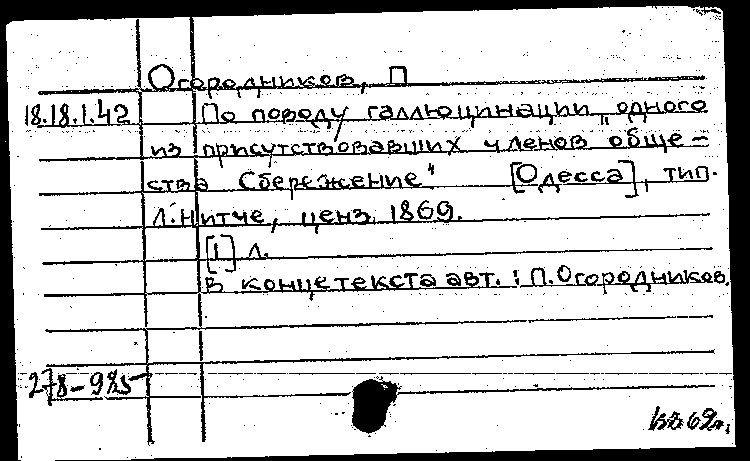 Огородников, П
18.18.1.42 По поводу галлюцинации „одного
из присутствовавших членов обще-
ства Сбережение" [Одесса], тип.
Л. Нитче, ценз. 1869.
[1] л.
В конце текста авт.: П. Огородников.
278-985